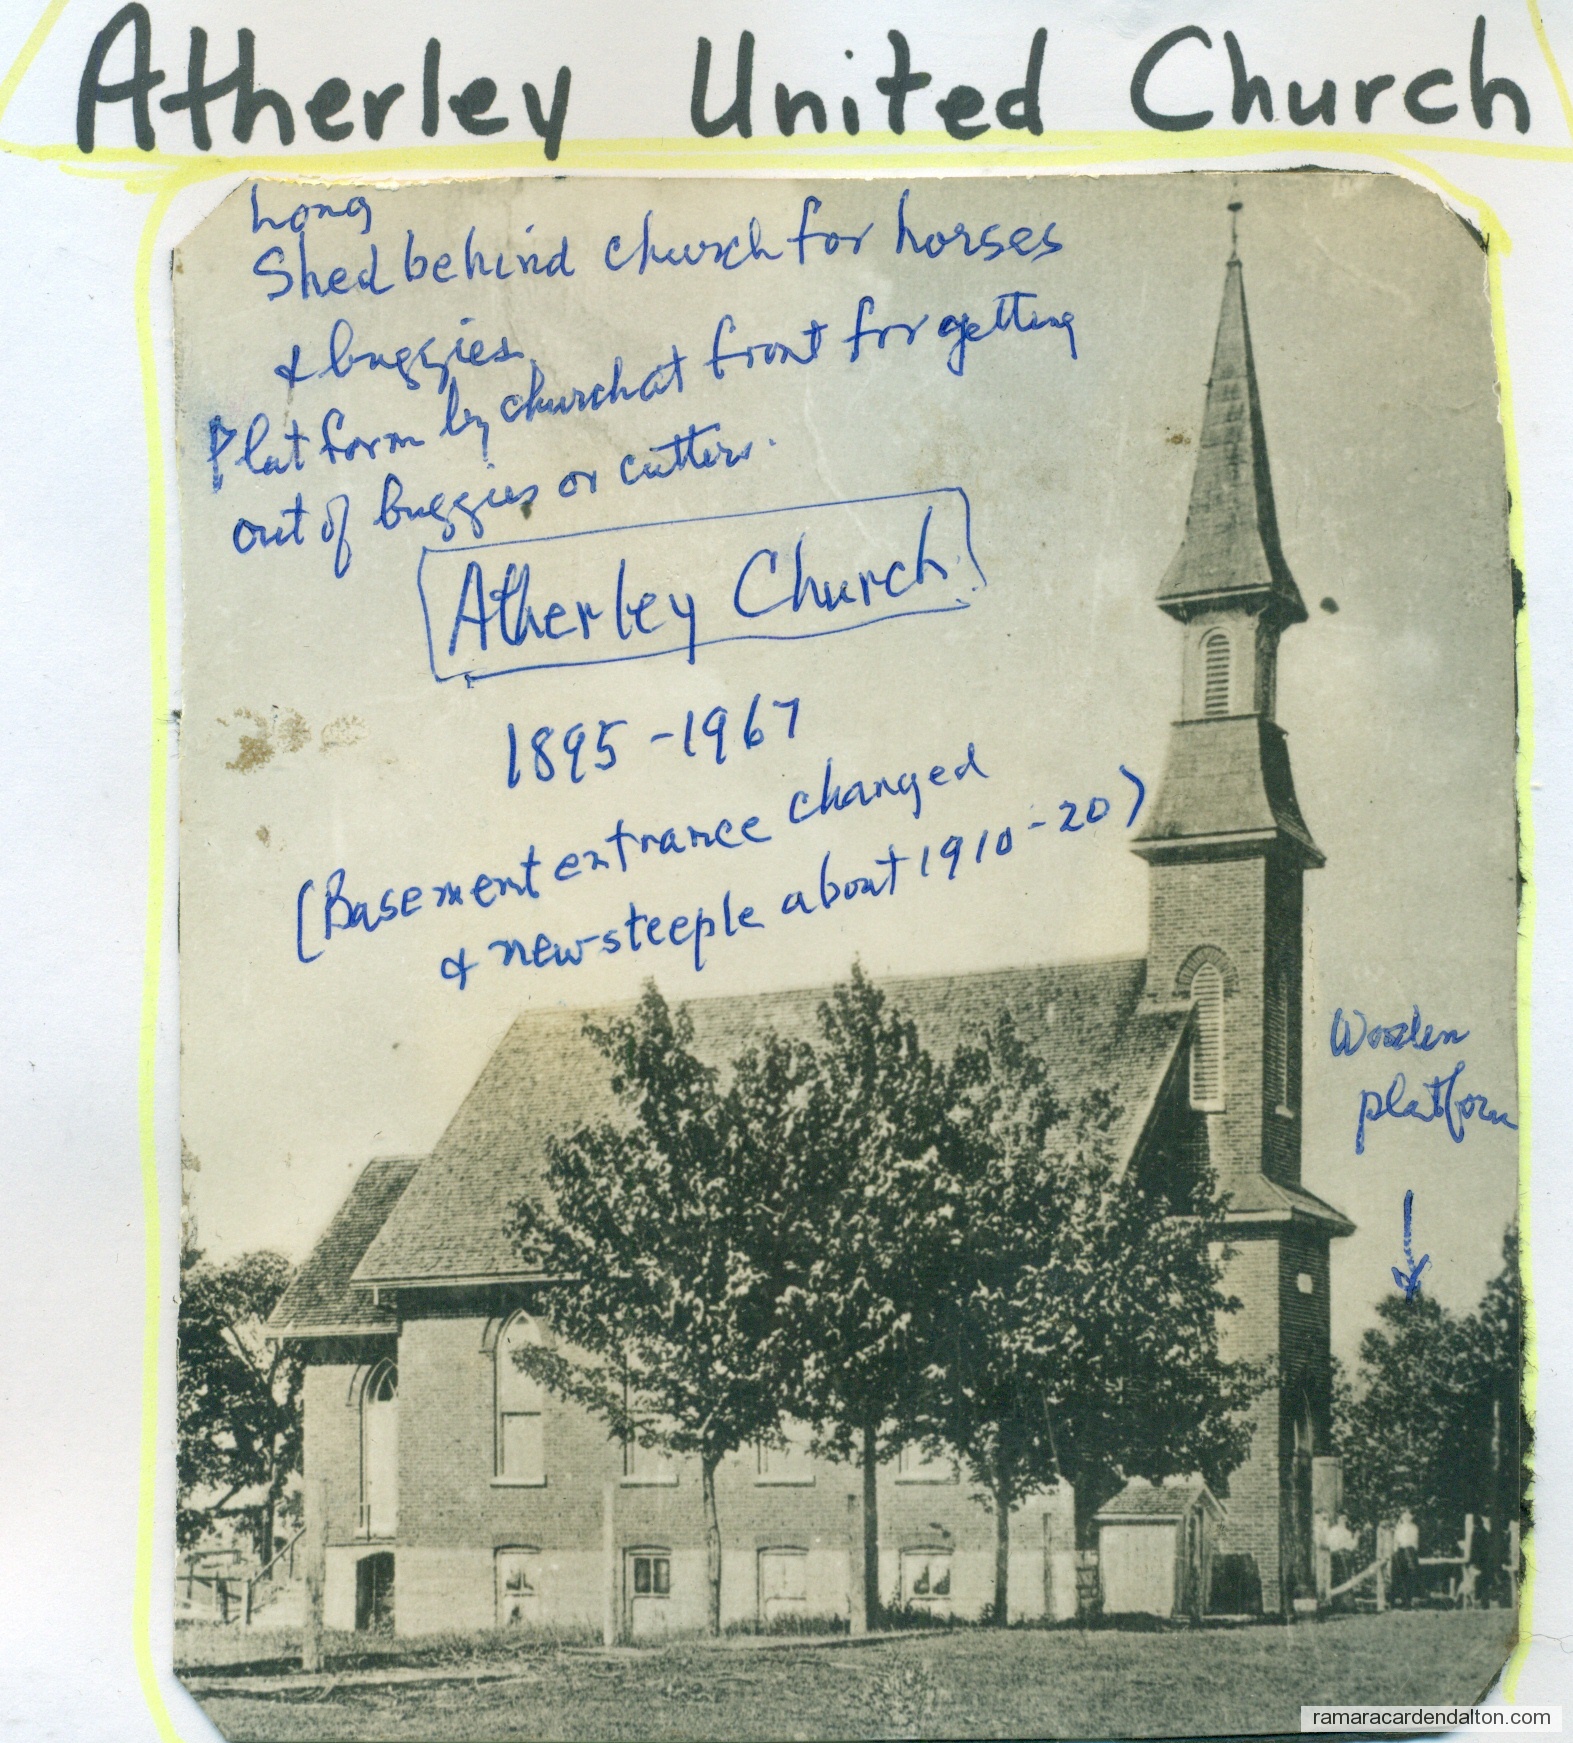 Atherley United Church
Long
Shed behind church for horses
& buggies
Platform by church at front for getting
out of buggies or cutters.
Atherley Church
1895-1967
(Basement entrance changed
& new steeple about 1910-20)
Wooden
platform
ramaracardendalton.com